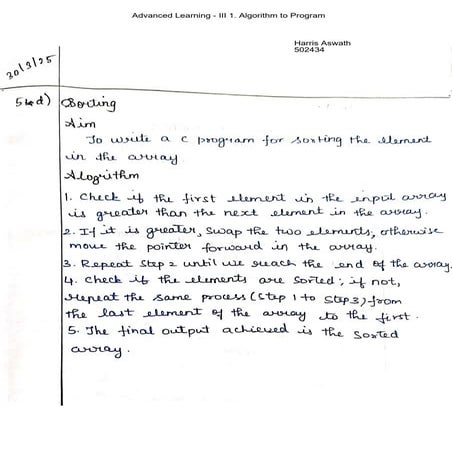 Advanced Learning - III 1. Algorithm to Program
Harris Aswath
502434
30/3/25
5 d) Sorting
Aim
To write a c program for sorting the element
in the array
Alogrithm
1. Check if the first element in the input array
is greater than the next element in the array.
2. If it is greater, swap the two elements, otherwise
move the pointer forward in the array.
3. Repeat Step 2 until we reach the end of the array.
4. Check if the elements are sorted; if not,
repeat the same process (Step 1 to Step 3) from
the last element of the array to the first.
5. The final output achieved is the sorted
array.